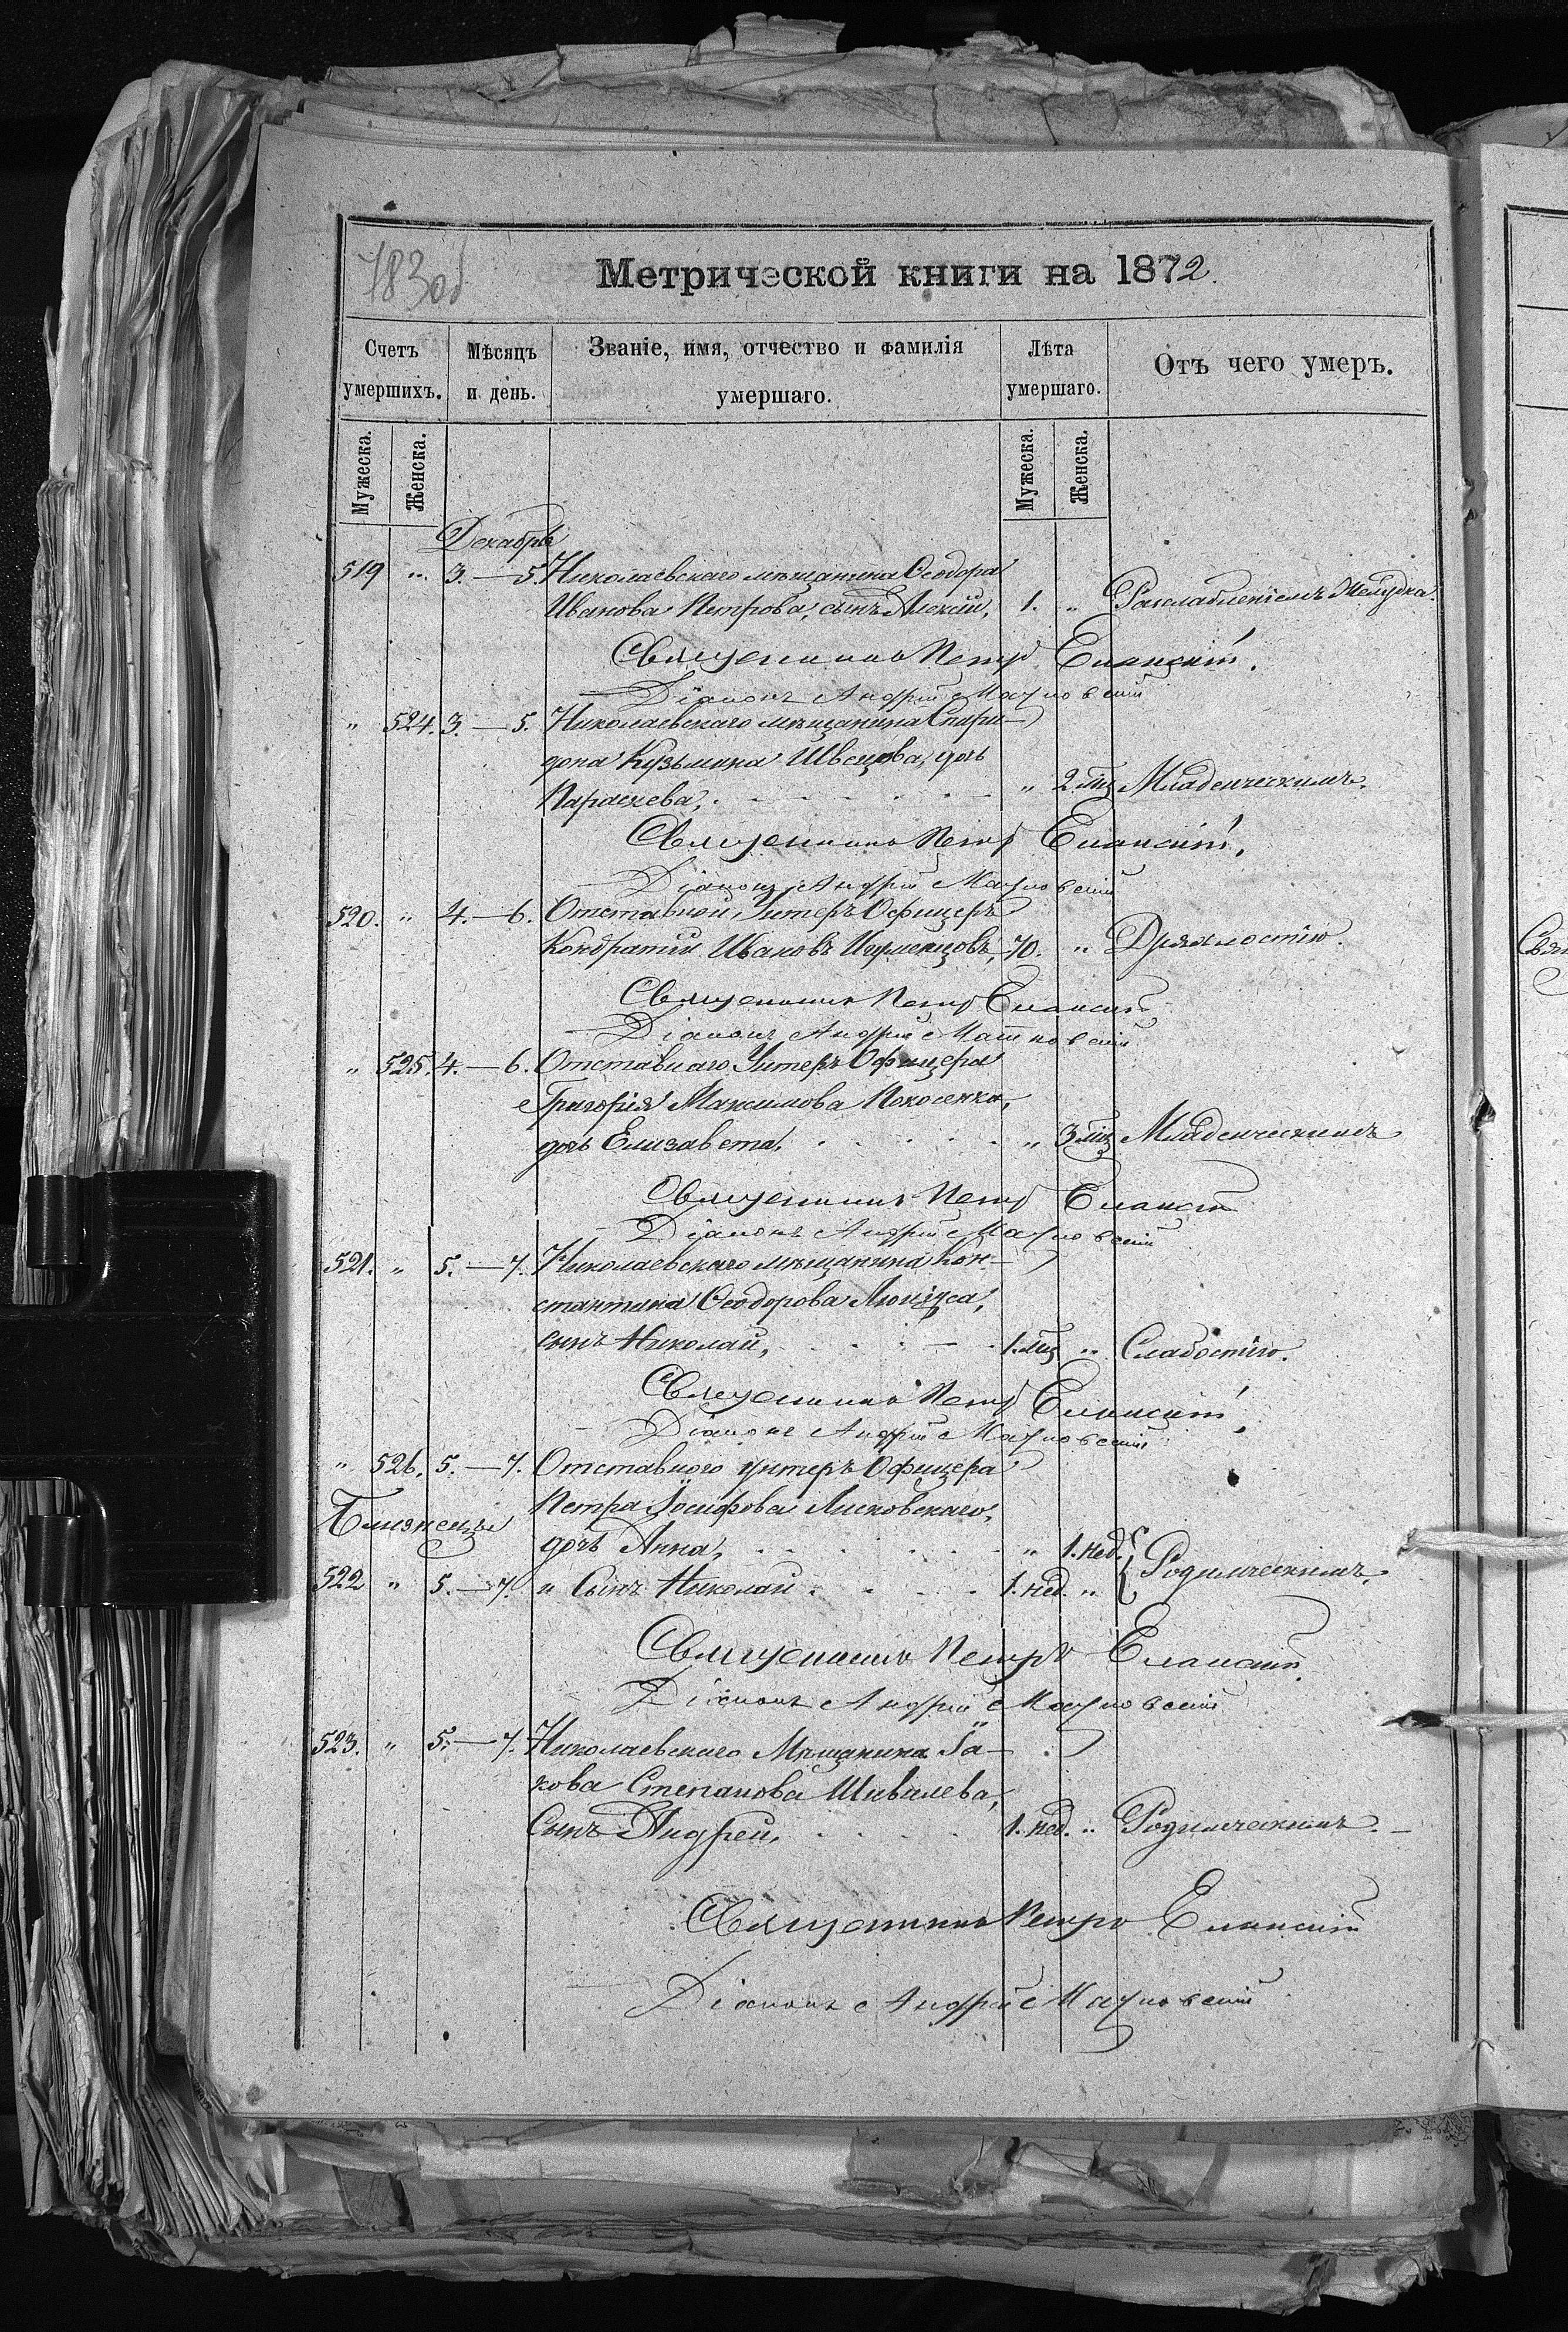 783об
Метрической книги на 1872.
Счетъ умершихъ.
Мѣсяцъ и день.
Званіе, имя, отчество и фамилія умершаго.
Лѣта умершаго.
Отъ чего умеръ.
Мужеска. Женска. Мужеска. Женска.
Декабрь
519 " 3.—5. Николаевскаго мѣщанина Ѳеодора
Иванова Петрова, сынъ Алексій, 1. " Разслабленіемъ Желудка.
Священникъ Петръ Еланскій.
Діаконъ Андрей
" 524. 3.—5. Николаевскаго мѣщанина Спири-
дона Кузьмина Швецова, дочь
Параскева, " 2. мц Младенческимъ.
Священникъ Петръ Еланскій.
Діаконъ Андрей
520. " 4.—6. Отставной Унтеръ Офицеръ
Кондратій Ивановъ Игуменцовъ, 70. " Дряхлостію.
Священникъ Петръ Еланскій
Діаконъ Андрей
" 525. 4.—6. Отставнаго Унтеръ Офицера
Григорія Максимова Покосенко,
дочь Елизавета, " 3 мц Младенческимъ
Священникъ Петръ Еланскій
Діаконъ Андрей
521. " 5.—7. Николаевскаго мѣщанина Кон-
стантина Ѳеодорова
сынъ Николай, 1. мц " Слабостію.
Священникъ Петръ Еланскій.
Діаконъ Андрей
" 526. 5.—7. Отставного унтеръ Офицера
Петра Іосифова Лисковскаго,
Близнецы
дочь Анна, " 1. нед. Родимческимъ.
522 " 5.—7. и Сынъ Николай 1. нед. "
Священникъ Петръ Еланскій.
Діаконъ Андрей
523. " 5.—7. Николаевскаго Мѣщанина Іа-
кова Степанова Шивилева,
Сынъ Андрей, 1. нед. " Родимческимъ.
Священникъ Петръ Еланскій
Діаконъ Андрей